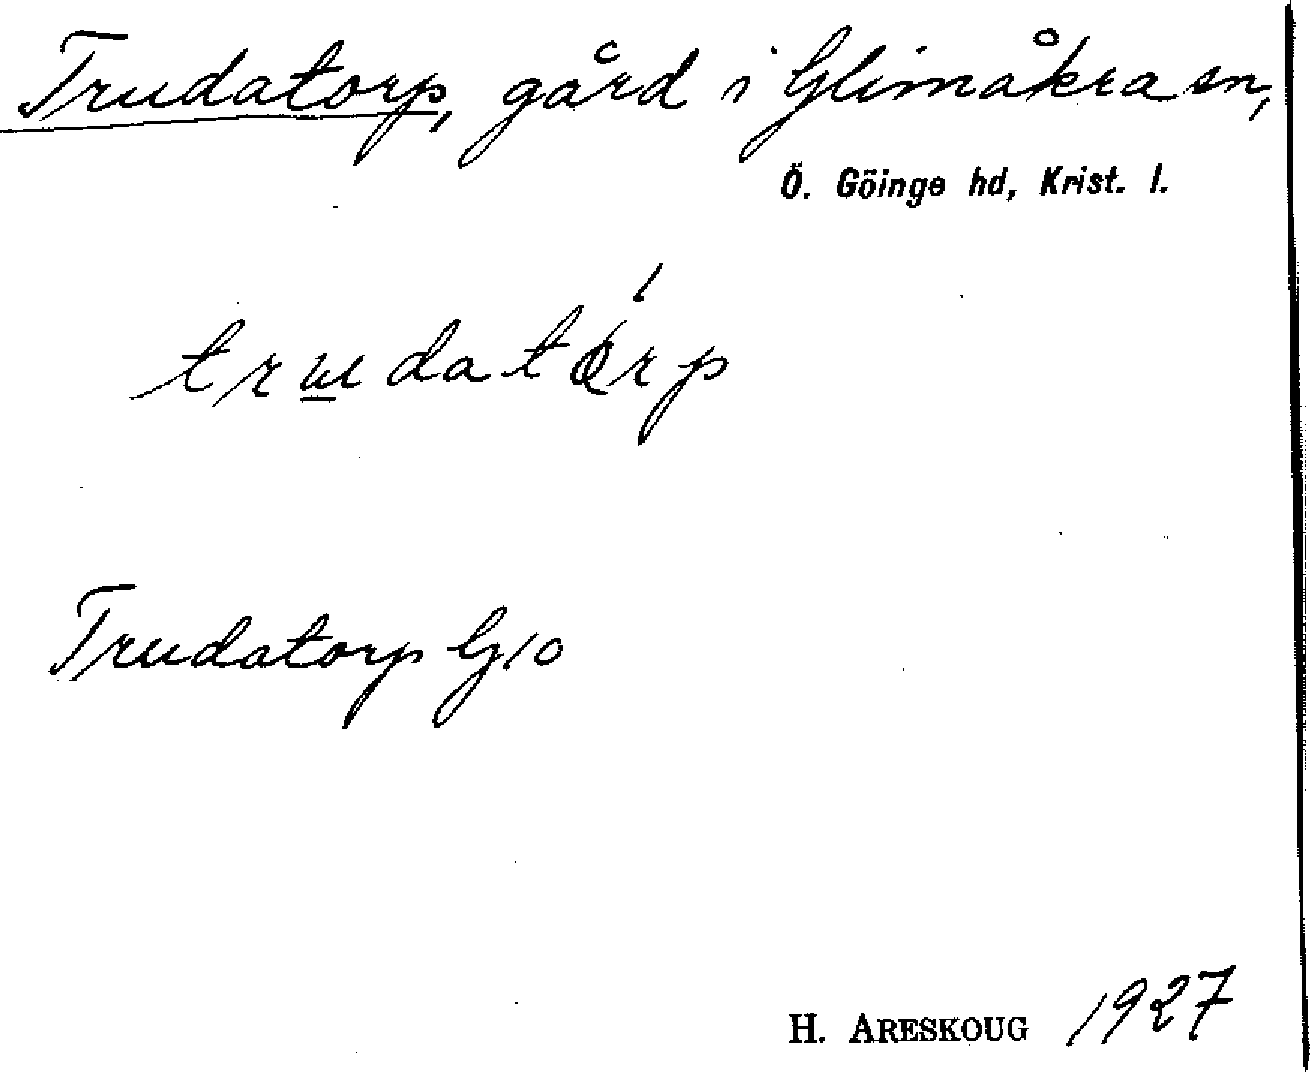 Trudatorp, gård i Glimåkra sn,
Ö. Göinge hd, Krist. l.
Trudatorp G10
H. ARESKOUG 1927